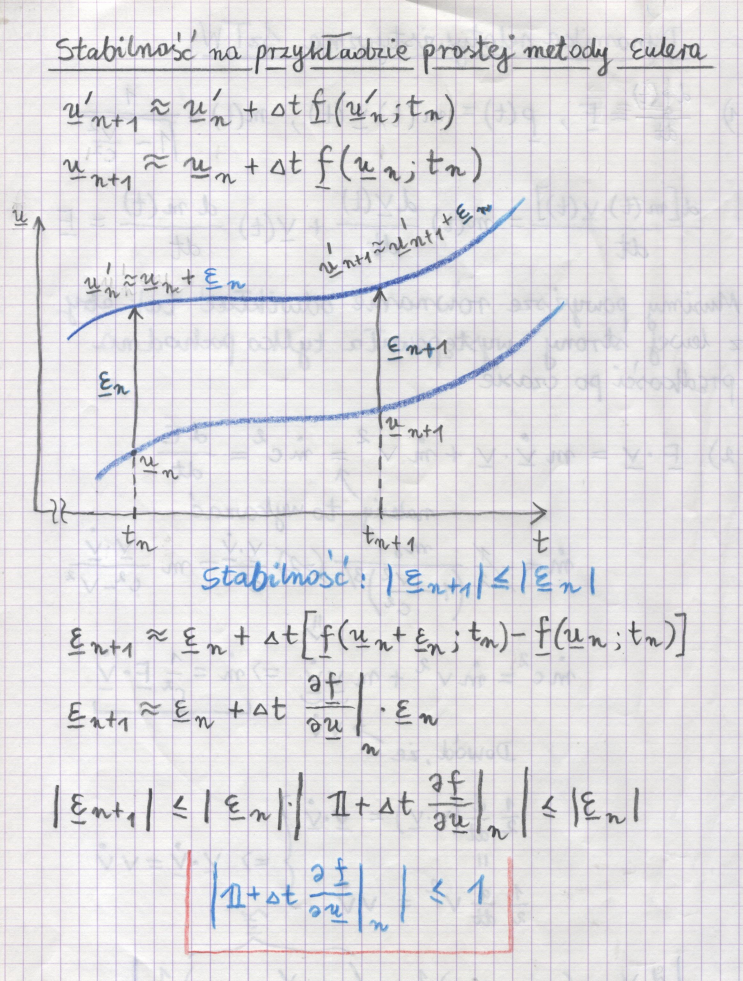 Stabilność na przykładzie prostej metody Eulera
u'n+1 ≈ u'n + Δt f(u'n; tn)
un+1 ≈ un + Δt f(un; tn)
u
u'n ≈ un + εn
u'n+1 ≈ u'n+1 + εn
εn
εn+1
un
un+1
tn
tn+1
t
Stabilność: |εn+1| ≤ |εn|
εn+1 ≈ εn + Δt[f(un + εn; tn) - f(un; tn)]
εn+1 ≈ εn + Δt ∂f/∂u|n · εn
|εn+1| ≤ |εn|·|𝟙 + Δt ∂f/∂u|n| ≤ |εn|
|𝟙 + Δt ∂f/∂u|n| ≤ 1